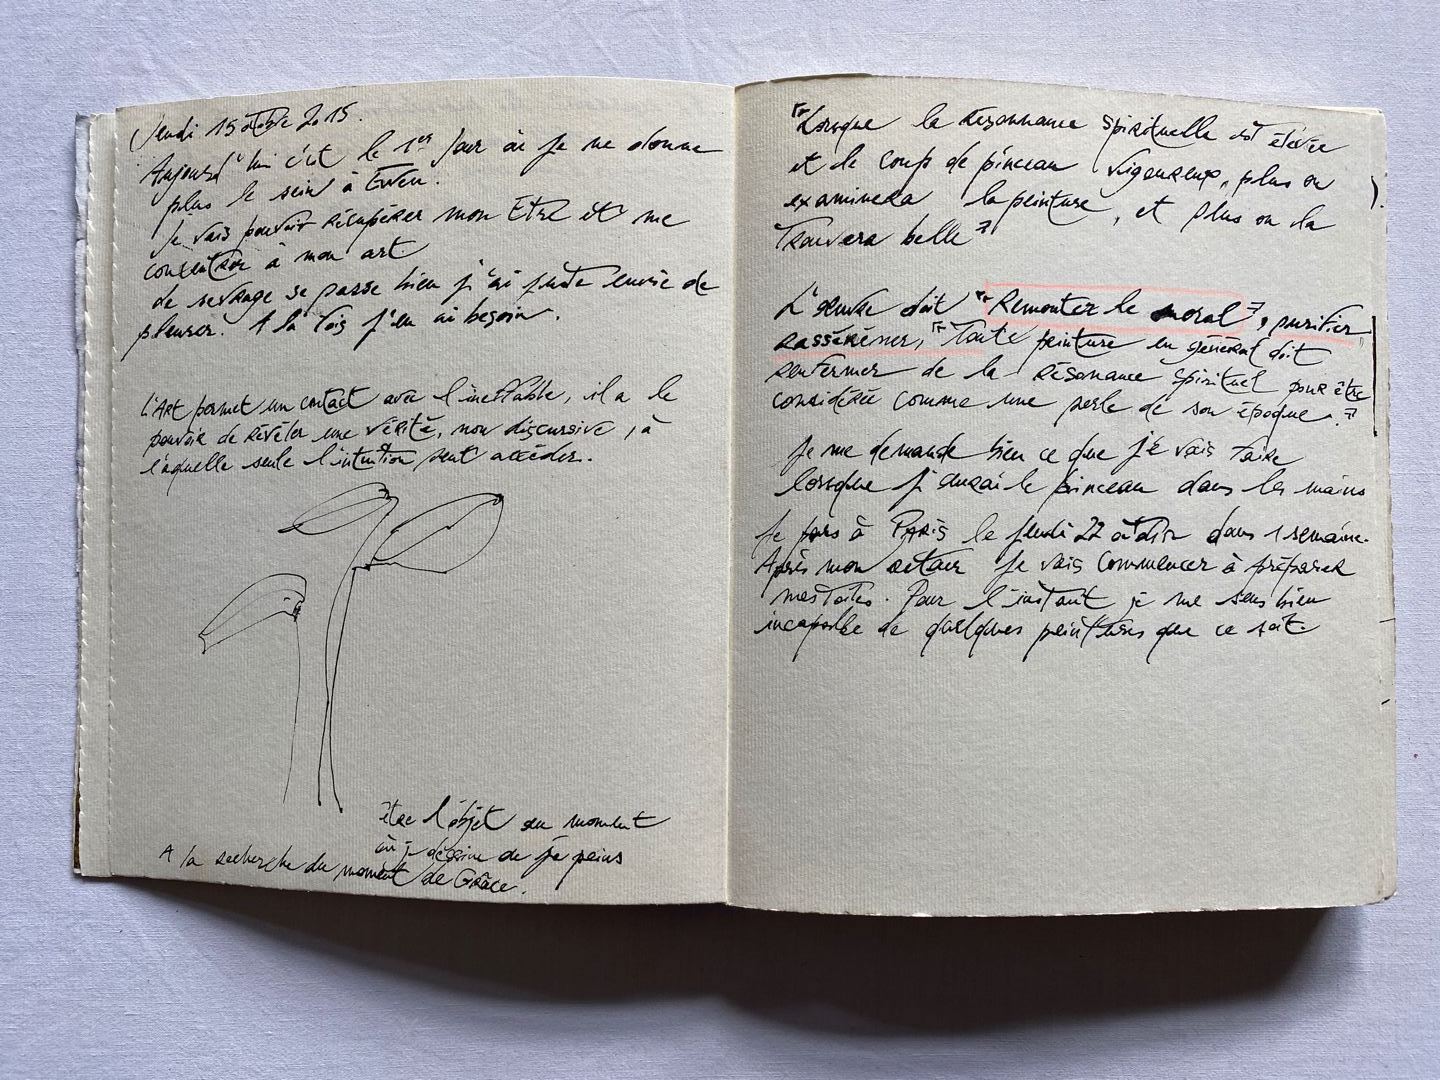 Jeudi 15 octobre 2015.
Aujourd'hui c'est le 1er jour où je ne donne
plus le sein à Ewen.
Je vais pouvoir récupérer mon Etre et me
concentrer à mon art.
Le sevrage se passe bien j'ai juste envie de
pleurer. A la fois j'en ai besoin.
L'Art permet un contact avec l'ineffable, il a le
pouvoir de révéler une vérité, non discursive, à
laquelle seule l'intuition peut accéder.
être l'objet au moment
où je dessine ou je peins
A la recherche du moment de Grâce.
"Lorsque la résonnance spirituelle est élevée
et le coup de pinceau vigoureux, plus on
examinera la peinture, et plus on la
trouvera belle"
L'œuvre doit "Remonter le moral", purifier
rasséréner, "Toute peinture en général doit
renfermer de la résonance spirituel pour être
considérée comme une perle de son époque."
Je me demande bien ce que je vais faire
lorsque j'aurai le pinceau dans les mains
Je pars à PARIS le jeudi 22 dans 1 semaine.
Après mon retour je vais commencer à préparer
mes toiles. Pour l'instant je me sens bien
incapable de quelques peintures que ce soit.